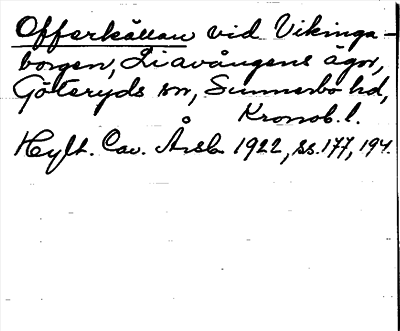 Offerkällan vid Vikinga-
borgen, Liavångens ägor,
Göteryds sn, Sunnerbo hd,
Kronob. l.
Hylt. Cav. Årsb 1922, ss. 177, 194.